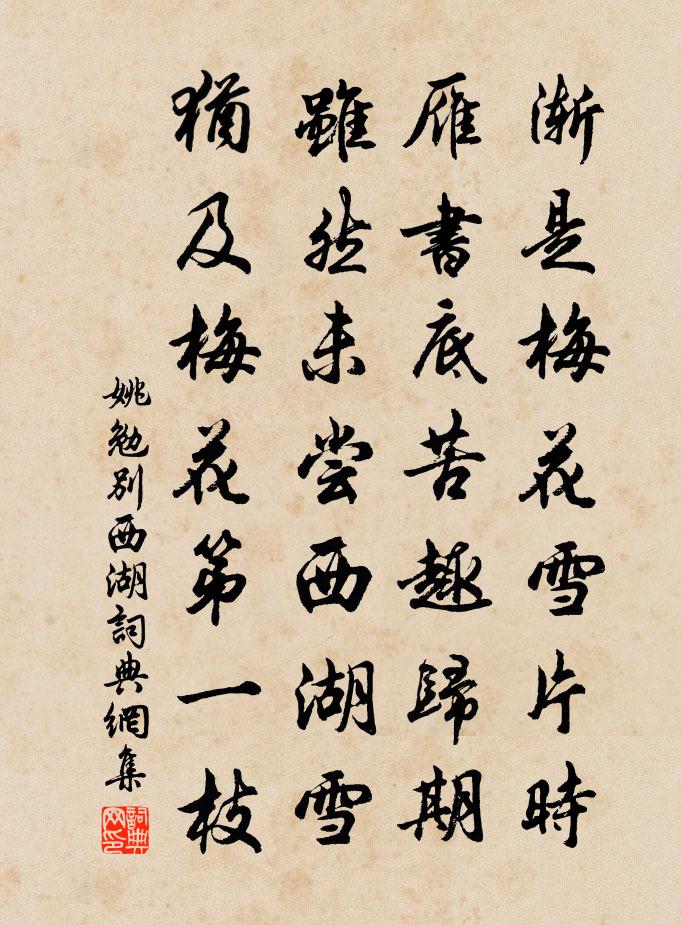 漸是梅花雪片時
雁書底苦趣歸期
雖然未尝西湖雪
猶及梅花第一枝
姚勉別西湖詞典網集
詞典
网印